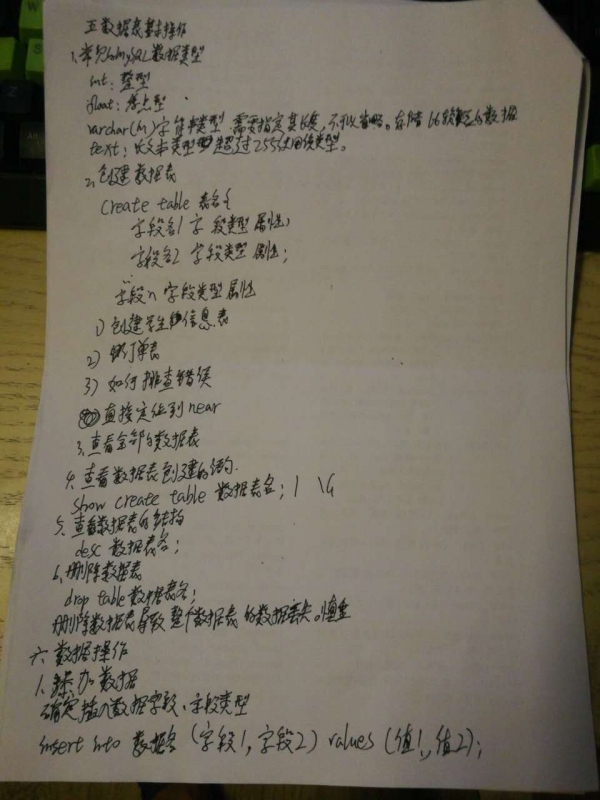 五 数据表基本操作
1. 常见的mySQL数据类型
int: 整型
float: 浮点型
varchar(m)字符串类型 需要指定其长度,不可以省略。存储 的数据
text: 长文本类型 超过255使用该类型。
2. 创建数据表
create table 表名{
字段名1 字段类型 属性;
字段名2 字段类型 属性;
...
字段n 字段类型 属性
1) 创建学生信息表
2) 订单表
3) 如何排查错误
直接定位到near
3. 查看全部的数据表
4. 查看数据表创建的
show create table 数据表名; | \G
5. 查看数据表的结构
desc 数据表名;
6. 删除数据表
drop table 数据表名;
删除数据表导致整个数据表的数据丢失。慎重
六 数据操作
1. 添加数据
确定插入数据字段、字段类型
insert into 数据名 (字段1,字段2) values (值1,值2);